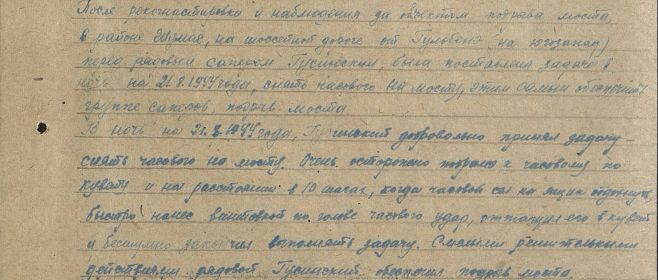 После рекогнастировки и наблюдения за объектом подрыва моста,
в районе на шоссейной дороге от Гулбене (на югозапад)
перед рядовым сапером Гусинским, была поставлена задача в
ночь на 21.8.1944 года, снять часового на мосту, этим самым обеспечить
группе саперов, подрыв моста
В ночь на 21.8.1944 года, Гусинский добровольно принял задачу
снять часового на мосту. Очень осторожно к часовому по
кувету и на расстоянии в 10 шагах, когда часовой сел на ящик отдохнуть,
быстро нанес винтовкой по голове часового удар, оттащил его в кувет
и бесшумно закончил выполнять задачу. Смелыми решительными
действиями рядовой Гусинский обеспечил подрыв моста.